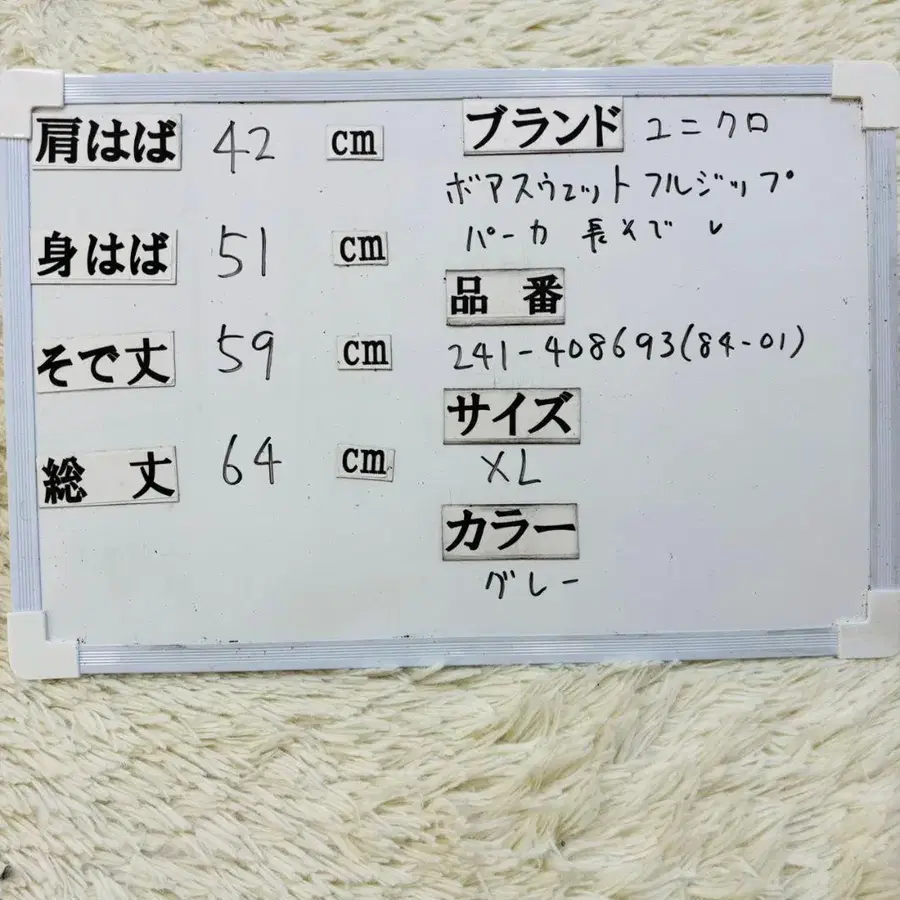 肩はば 42 cm
身はば 51 cm
そで丈 59 cm
総 丈 64 cm
ブランド ユニクロ
ボアスウェットフルジップ
パーカ 長そで レ
品 番
241-408693(84-01)
サイズ
XL
カラー
グレー